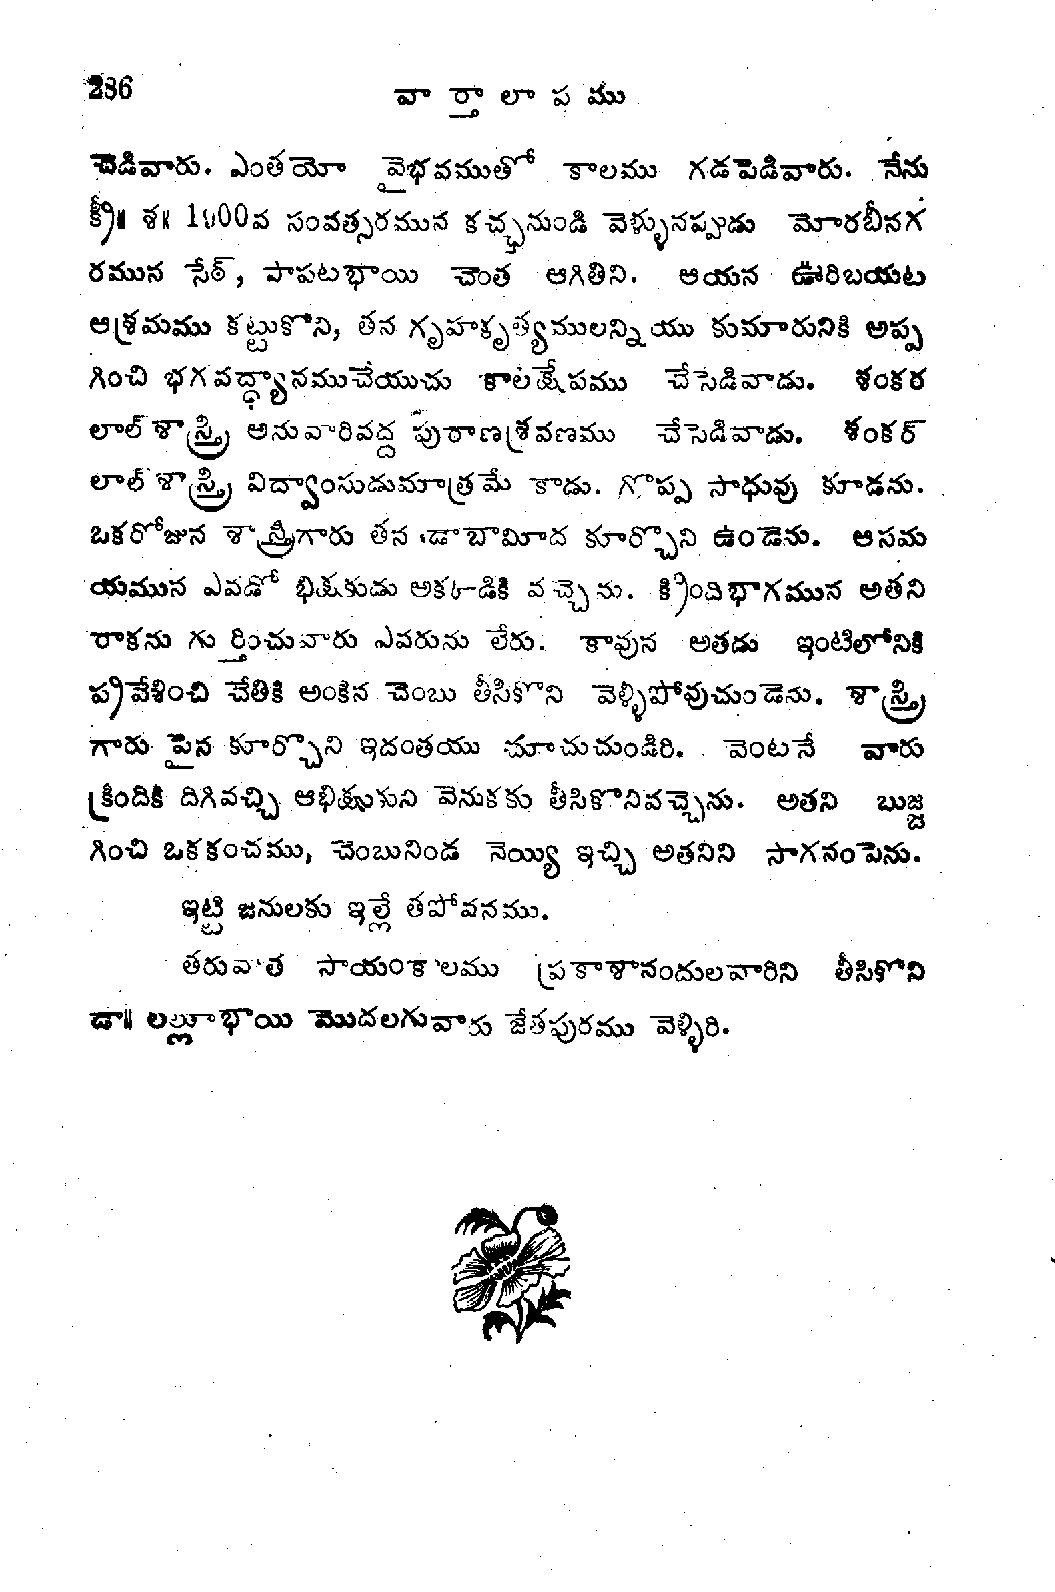 236
వార్తాలాపము
చెడివారు. ఎంతయో వైభవముతో కాలము గడపెడివారు. నేను
క్రీ॥ శ॥ 1900వ సంవత్సరమున కచ్ఛనుండి వెళ్ళునప్పుడు మోరబీనగ
రమున సేఠ్, పాపటభాయి చెంత ఆగితిని. ఆయన ఊరిబయట
ఆశ్రమము కట్టుకొని, తన గృహకృత్యములన్నియు కుమారునికి అప్ప
గించి భగవద్ధ్యానముచేయుచు కాలక్షేపము చేసెడివాడు. శంకర
లాల్ శాస్త్రి అనువారివద్ద పురాణశ్రవణము చేసెడివాడు. శంకర్
లాల్ శాస్త్రి విద్వాంసుడుమాత్రమే కాడు. గొప్ప సాధువు కూడను.
ఒకరోజున శాస్త్రీగారు తన డాబామీద కూర్చొని ఉండెను. ఆసమ
యమున ఎవడో భిక్షకుడు అకడికి వచ్చెను. క్రిందిభాగమున అతని
రాకను గుర్తించువారు ఎవరును లేరు. కావున అతడు ఇంటిలోనికి
ప్రవేశించి చేతికి అంకిన చెంబు తీసికొని వెళ్ళిపోవుచుండెను. శాస్త్రి
గారు పైన కూర్చొని ఇదంతయు చూచుచుండిరి. వెంటనే వారు
క్రిందికి దిగివచ్చి ఆభిక్షుకుని వెనుకకు తీసికొనివచ్చెను. అతని బుజ్జ
గించి ఒకకంచము, చెంబునిండ నెయ్యి ఇచ్చి అతనిని సాగనంపెను.
ఇట్టి జనులకు ఇల్లే తపోవనము.
తరువాత సాయంకాలము ప్రకాశానందులవారిని తీసికొని
డా॥ లల్లూభాయి మొదలగువారు జేతపురము వెళ్ళిరి.